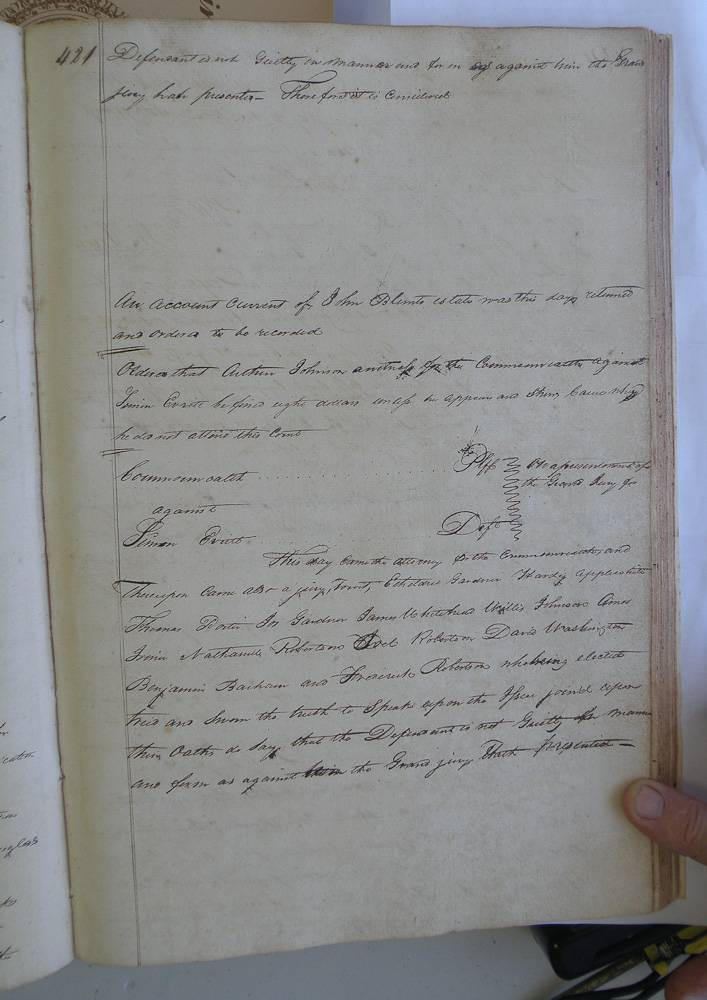 421
Defendant is not Guilty in manner and form as against him the Grand
jury hath presented – Therefore it is Considered
An account Current of John Blunts estate was this day returned
and ordered to be recorded
Ordered that Arthur Johnson a witness for the Commonwealth against
Simon Everitt be fined eight dollars unless he appears and shew Cause why
he did not attend this Court
Commonwealth Plff
On a presentment of
the Grand Jury for
against
Simon Everitt Deft
This day Came the attorney for the Commonwealth and
Thereupon Came also a jury, towit, Etheldred Gardner Hardy Applewhite
Thomas Porter Gardner James Whitehead Willis Johnson Amos
Irwin Nathaniel Robertson Joel Robertson David Washington
Benjamin Barham and Frederick Robertson who being elected
tried and Sworn the truth to Speak upon the Issue joined upon
their Oaths do Say, that the Defendant is not Guilty in manner
and form as against the Grand jury hath Presented –